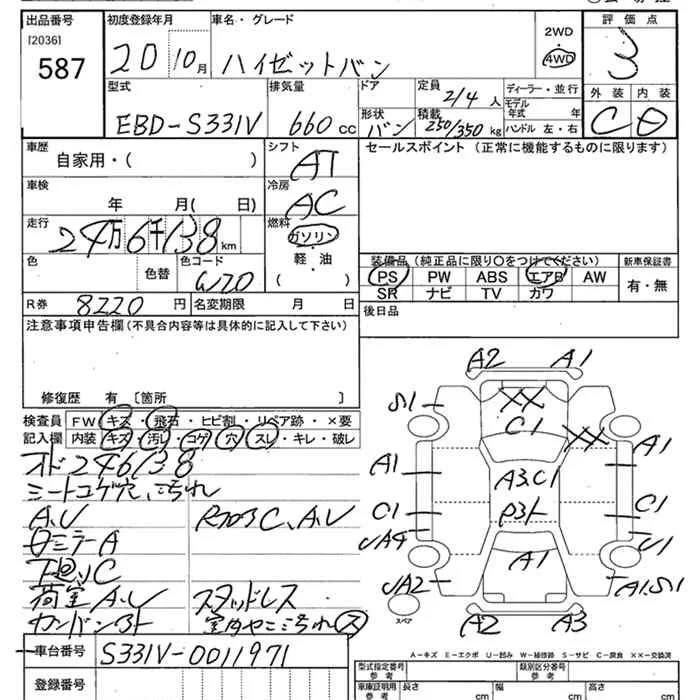 出品番号
[2036]
587
初度登録年月
20 10月
車名・グレード
ハイゼットバン
2WD
4WD
評価点
3
外装 内装
C D
型式
EBD-S331V
排気量
660 cc
ドア
形状
バン
定員
2/4 人
積載
250/350 kg
ディーラー・並行
モデル
年式 年
ハンドル 左・右
車歴
自家用・( )
シフト
AT
セールスポイント (正常に機能するものに限ります)
車検
年 月( 日)
冷房
AC
走行
24万6千138km
燃料
ガソリン
軽・油
( )
色
色替
色コード
W20
R券 8220 円
名変期限 月 日
装備品 (純正品に限り○をつけてください)
新車保証書
PS PW ABS エアB AW
SR ナビ TV カワ
有・無
後日品
注意事項申告欄 (不具合内容等は具体的に記入して下さい)
修復歴 有 [箇所 ]
検査員
記入欄
FW キズ・飛石・ヒビ割・リペア跡・×要
内装 キズ・汚レ・コゲ・穴・スレ・キレ・破レ
オド246138
シートコゲ穴、汚れ
A、U
ミラーA
下廻りC
荷室A、U
スタッドレス
A2 A1
S1
XX
C1
XX
A1
A1
A3.C1
C1
C1
A1
UA2
A1.S1
A2 A3
スペア
A-キズ E-エクボ U-凹み W-補修跡 S-サビ C-腐食 XX-交換済
車台番号
S331V-0011971
登録番号
型式指定番号
参考
類別区分番号
参考
車庫証明用
参考
長さ cm
幅 cm
高さ cm